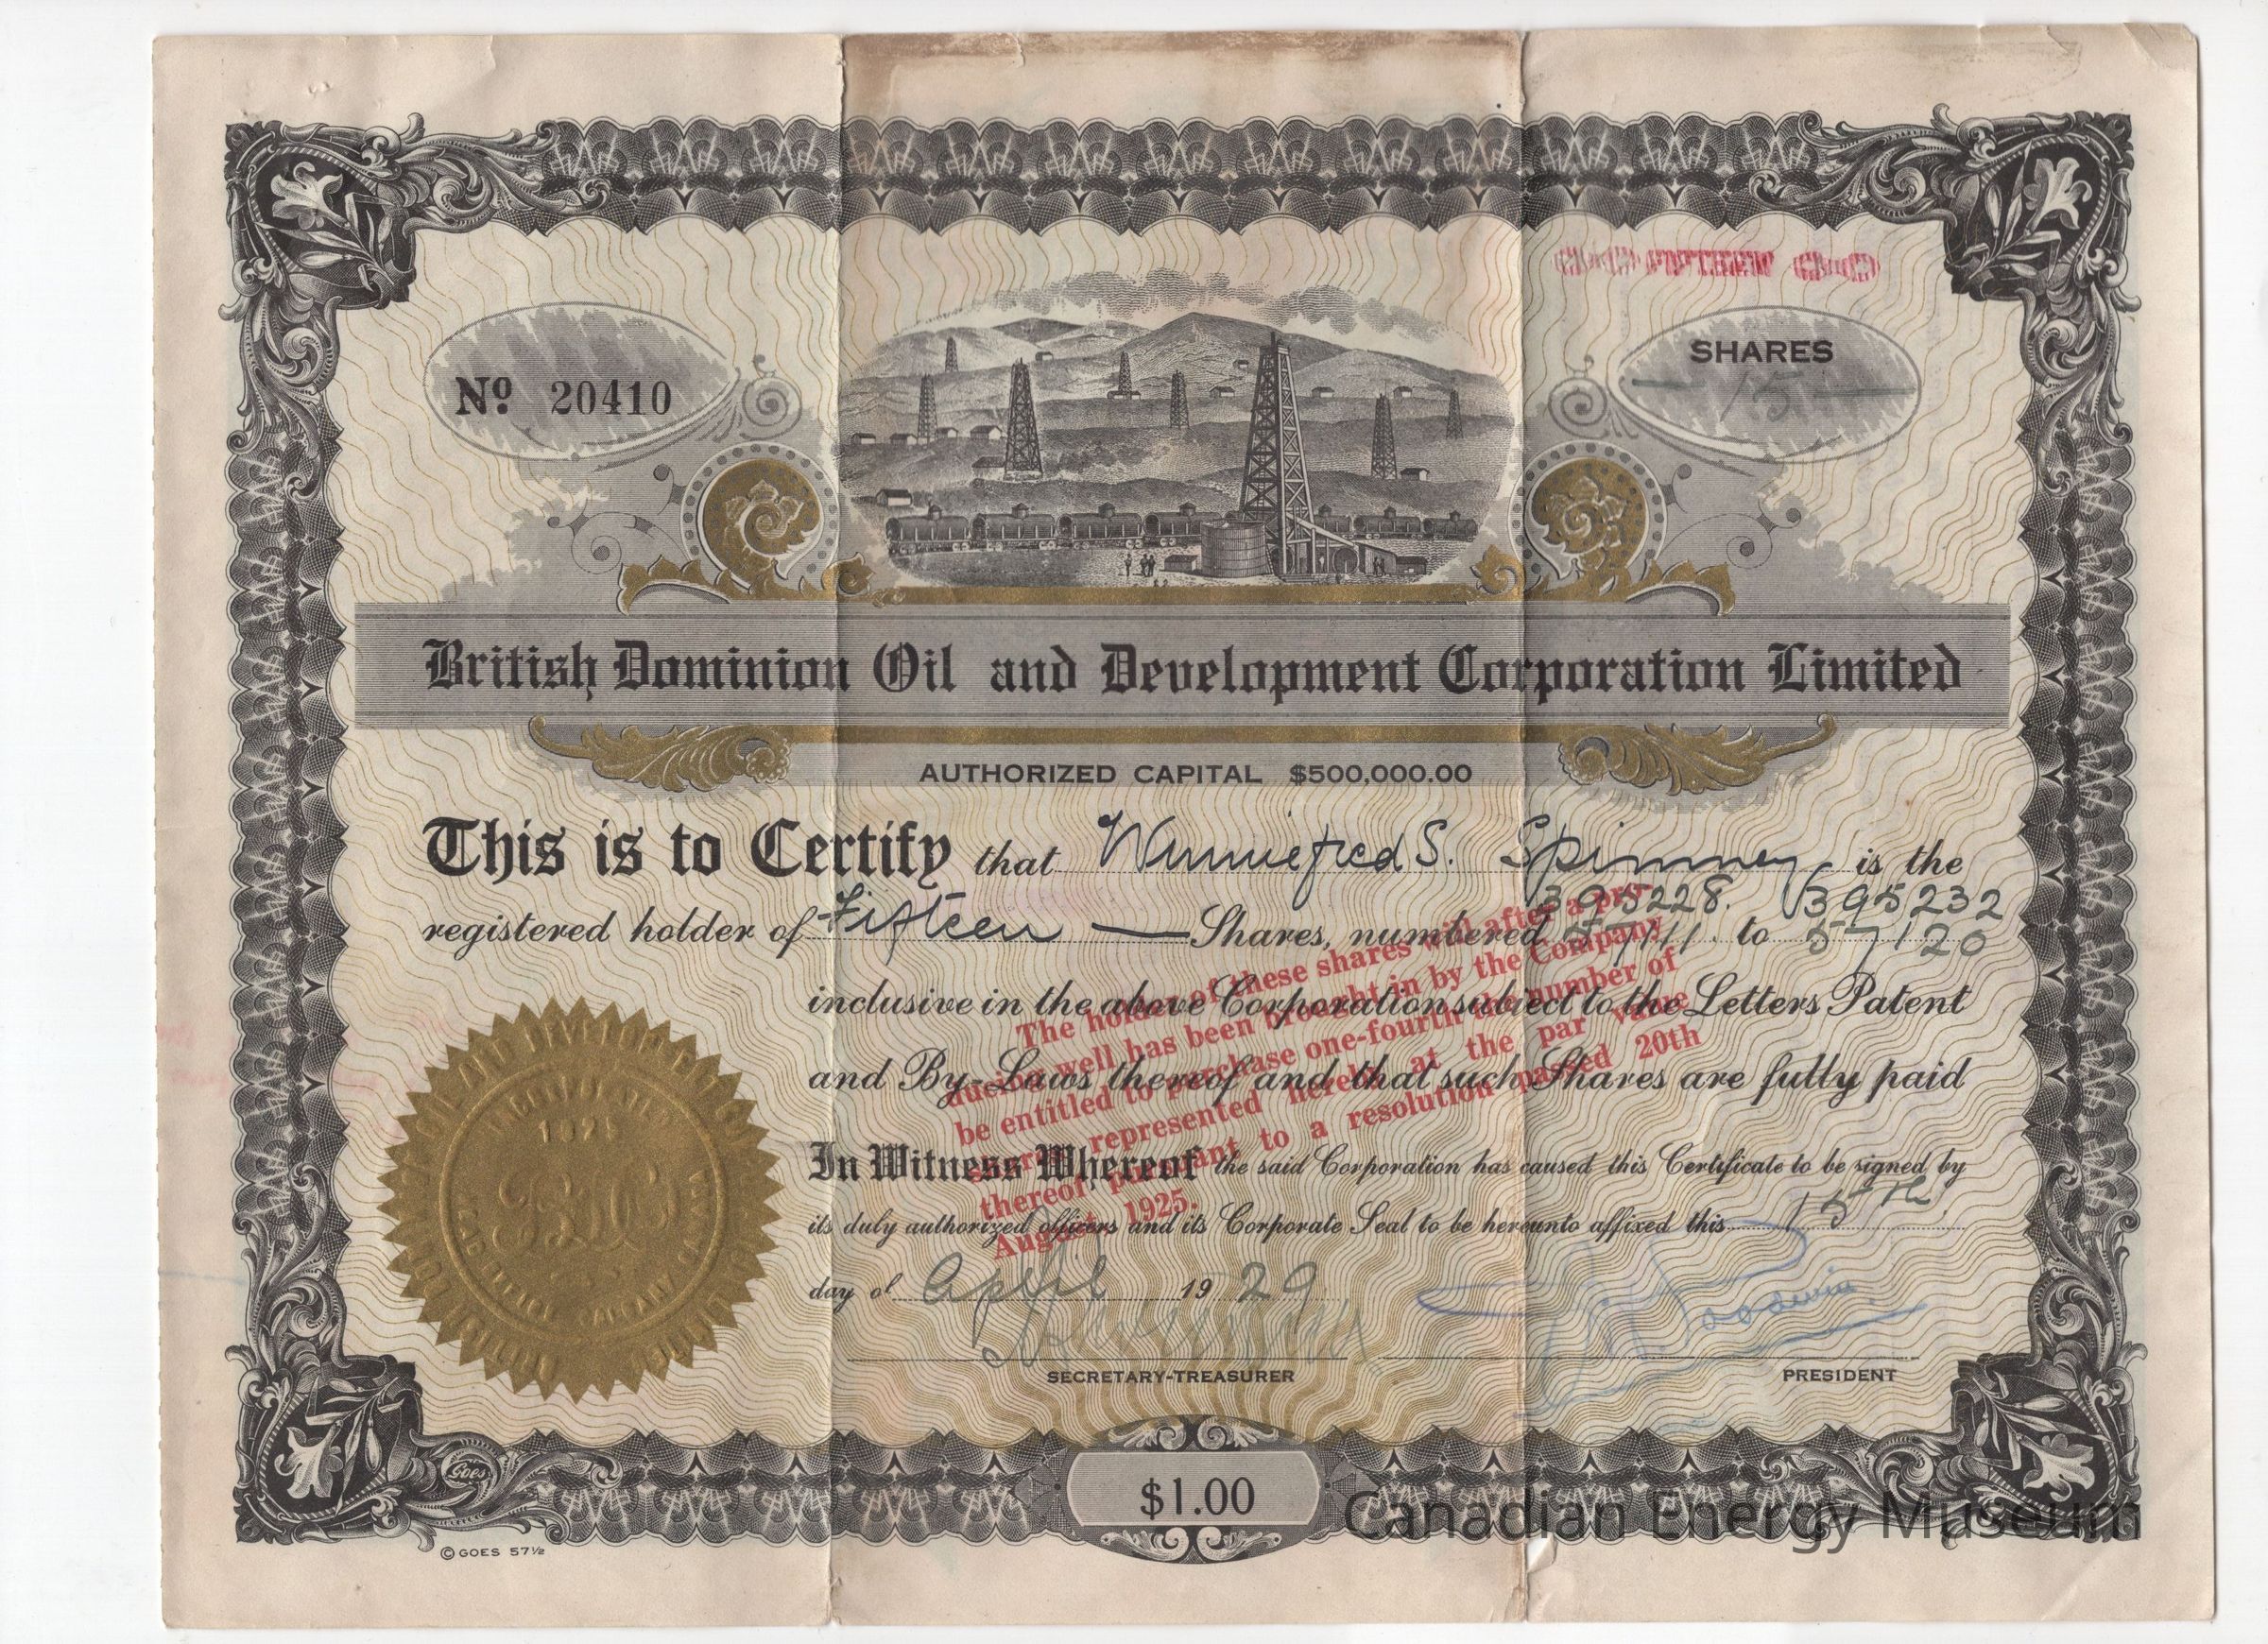 FIFTEEN
Nº 20410
SHARES
15
British Dominion Oil and Development Corporation Limited
AUTHORIZED CAPITAL $500,000.00
This is to Certify that Winniefred S. Spinney is the
395228. 395232
registered holder of Fifteen — Shares, numbered 57111. to 57120
inclusive in the above Corporation subject to the Letters Patent
and By-Laws thereof and that such Shares are fully paid
The holder of these shares will after a pro-
ducing well has been brought in by the Company
be entitled to purchase one-fourth the number of
shares represented hereby at the par value
thereof pursuant to a resolution passed 20th
August, 1925.
In Witness Whereof the said Corporation has caused this Certificate to be signed by
its duly authorized officers and its Corporate Seal to be hereunto affixed this 15th
day of April 1929
SECRETARY-TREASURER
PRESIDENT
1925
Goes
$1.00
© GOES 57½
Canadian Energy Museum